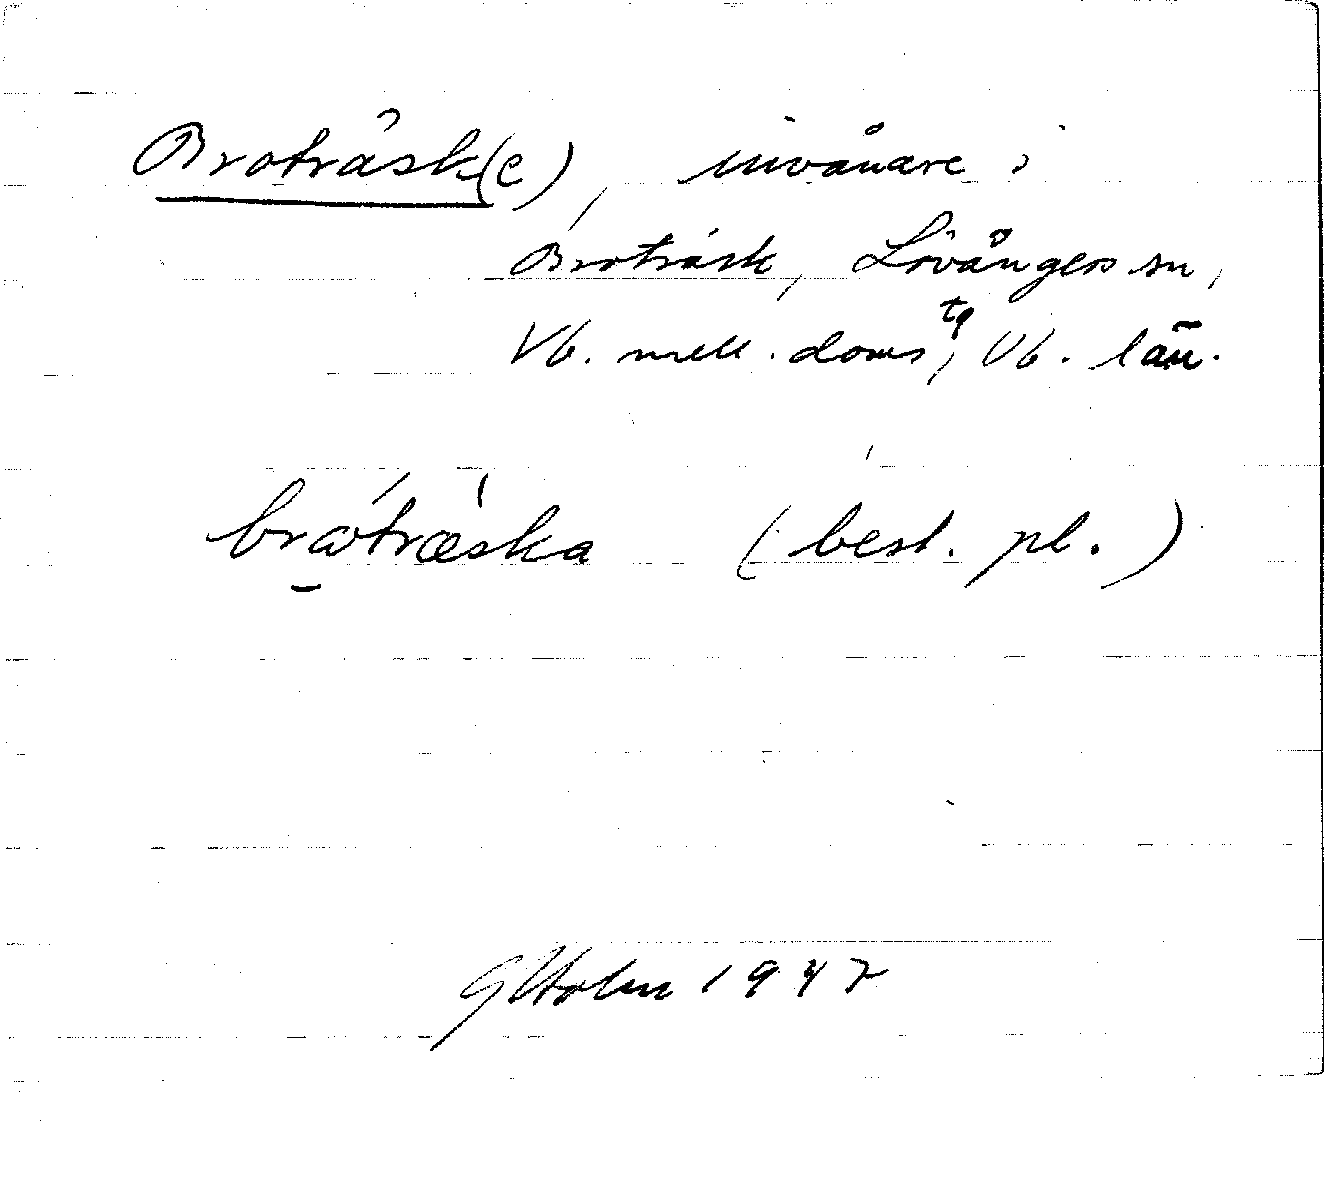 Broträsk(e), invånare i
Broträsk, Lövångers sn,
Vb. mell. doms tg, Vb. län.
brót́ræska (best. pl.)
G Holm 1947